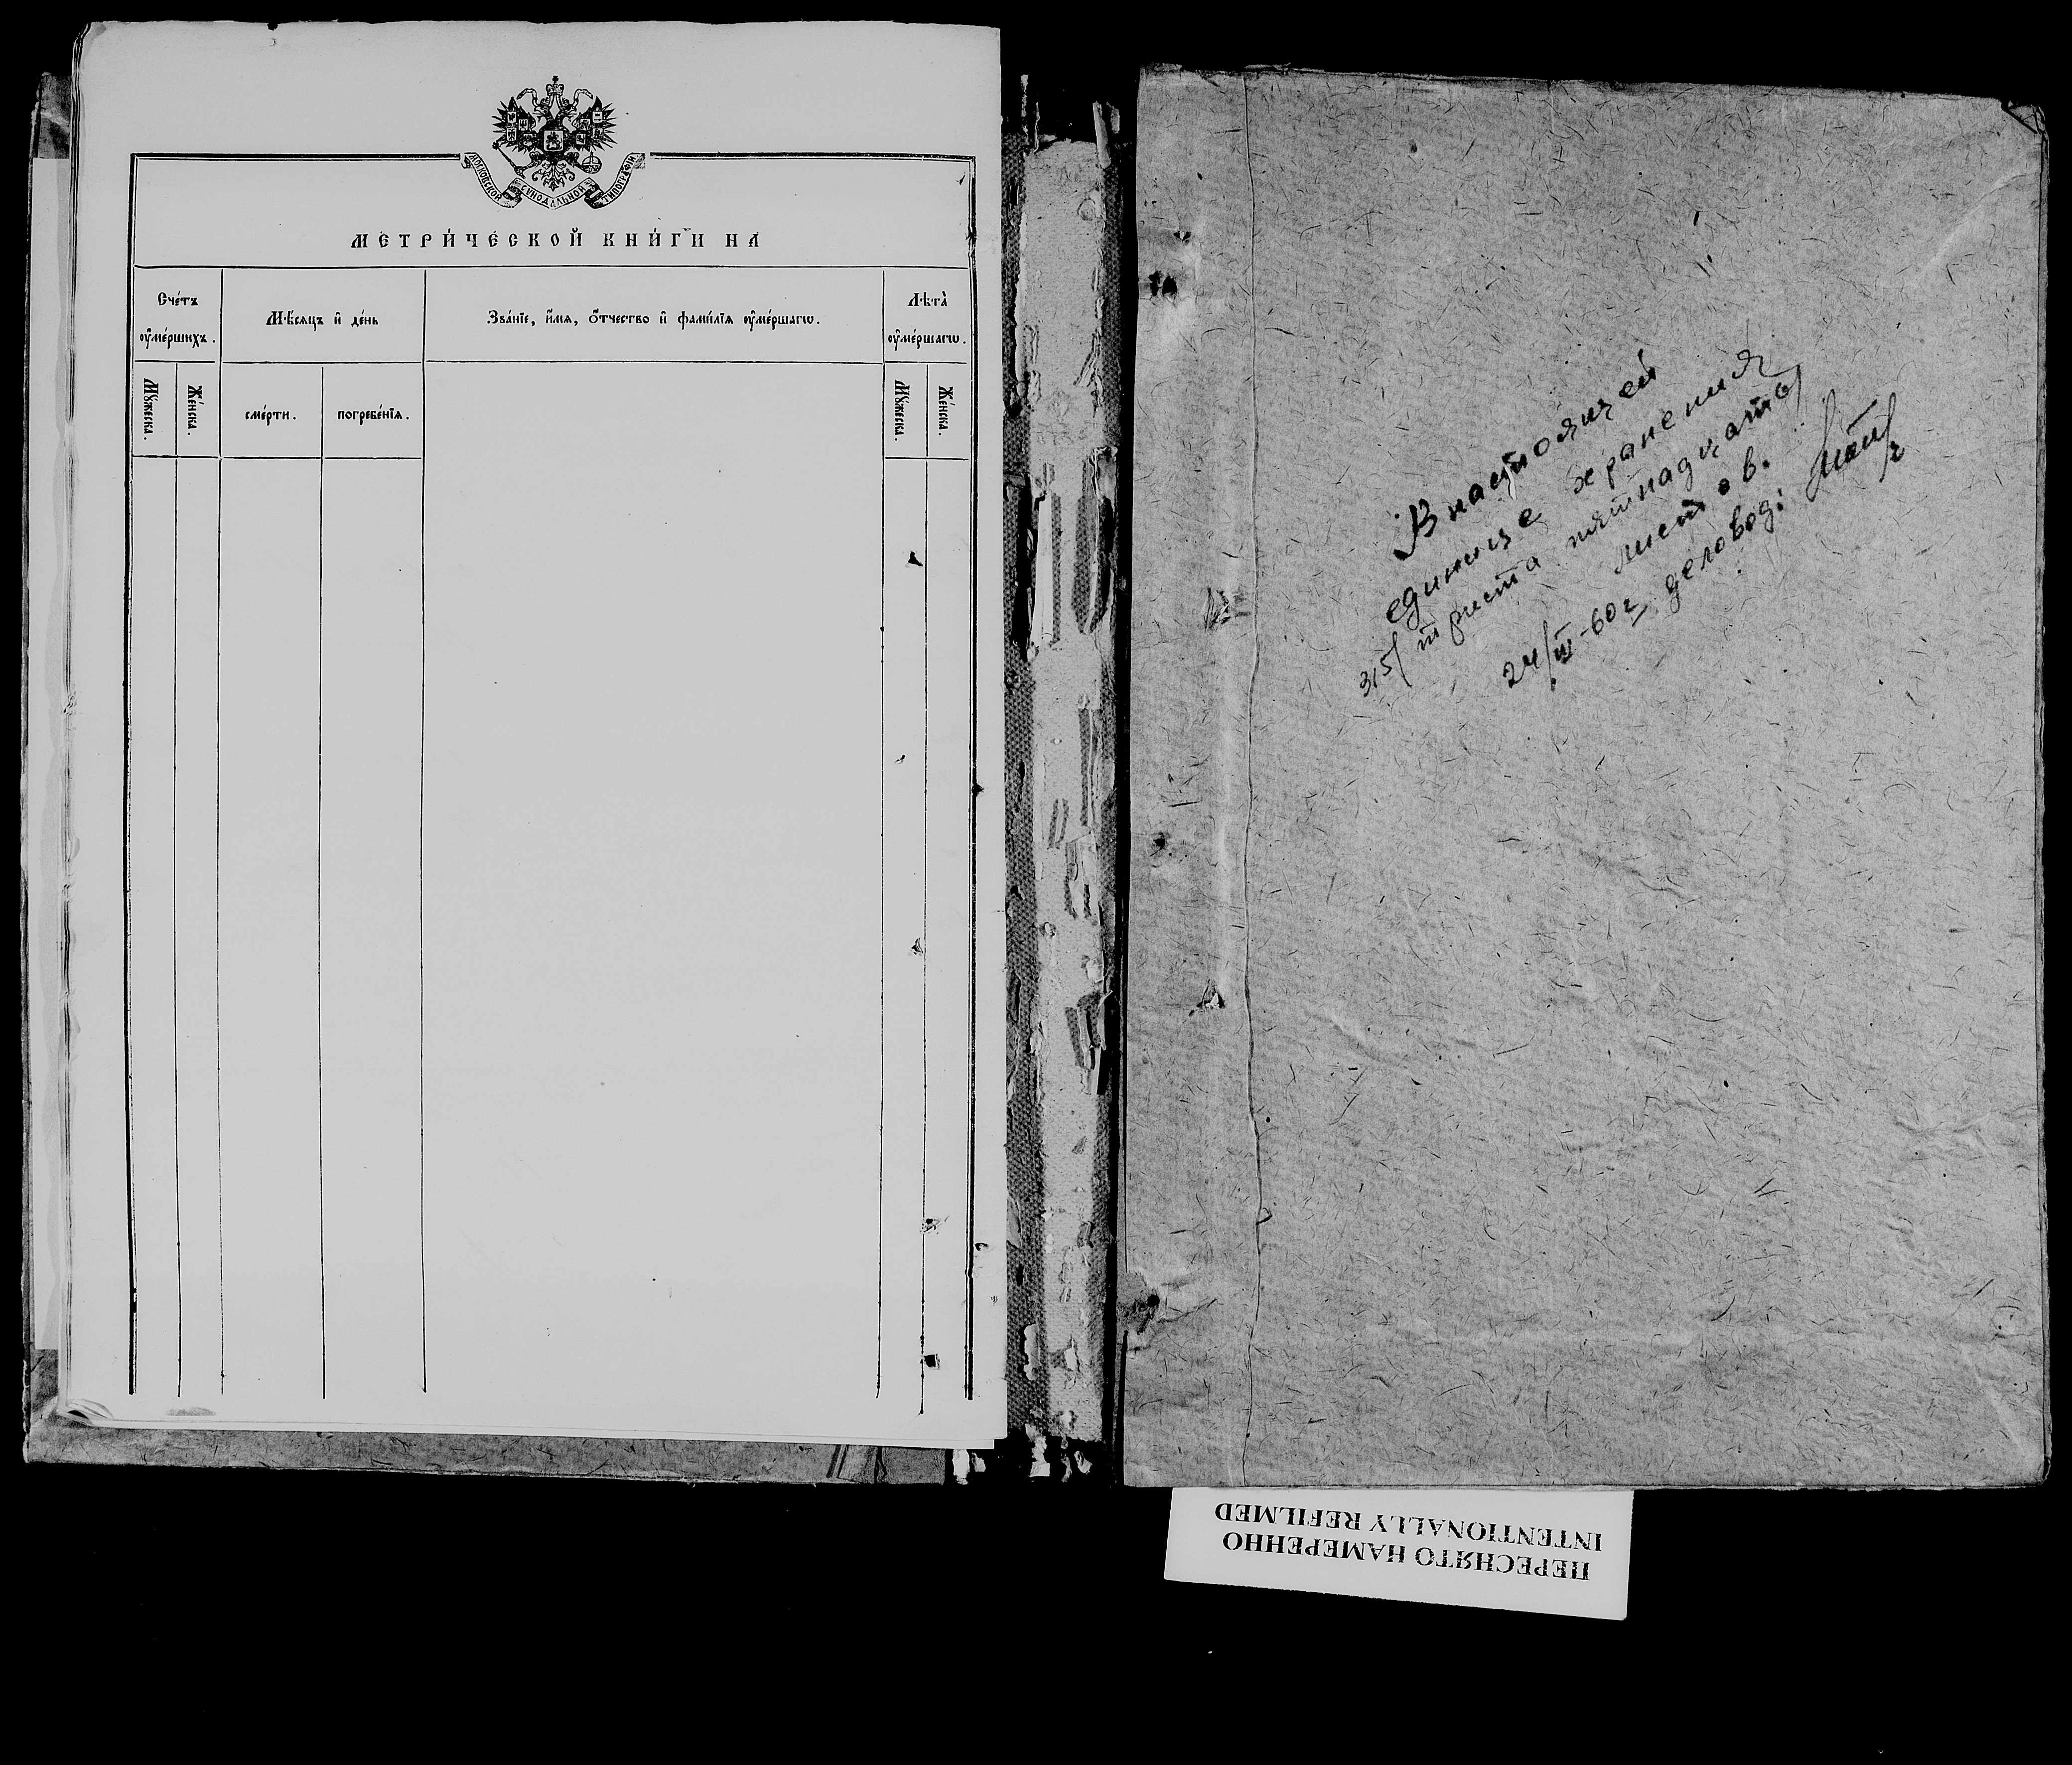 МОСКОВСКОЙ СѴНОДАЛЬНОЙ ТИПОГРАФІИ
МЕТРИ́ЧЕСКОЙ КНИ́ГИ НА
Сче́тъ ᲂу҆ме́ршихъ.
Мѣ́сяцъ и҆ де́нь
Зва́нїе, и҆́мѧ, ѻ҆́тчество и҆ фами́лїѧ ᲂу҆ме́ршагѡ.
Лѣ́та ᲂу҆ме́ршагѡ.
Мꙋ́жеска.
Же́нска.
сме́рти.
погребе́нїѧ.
Мꙋ́жеска.
Же́нска.
В настоящей
единице хранения
315/ триста пятнадцать/
листов.
24/III-60 г. деловод:
ПЕРЕСНЯТО НАМЕРЕННО
INTENTIONALLY REFILMED